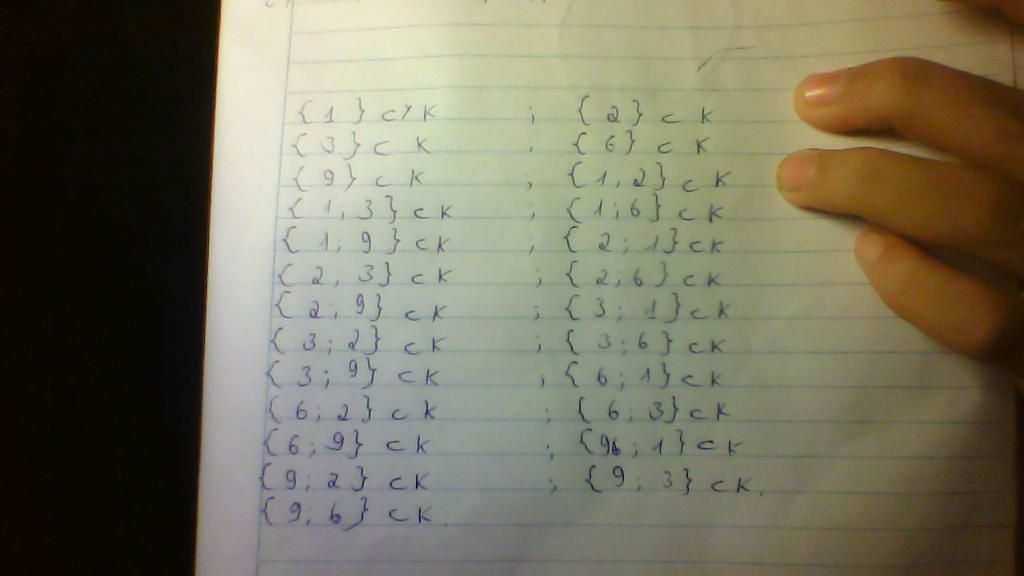 {1} ⊂ K ; {2} ⊂ K
{3} ⊂ K ; {6} ⊂ K
{9} ⊂ K ; {1,2} ⊂ K
{1;3} ⊂ K ; {1;6} ⊂ K
{1;9} ⊂ K ; {2;1} ⊂ K
{2;3} ⊂ K ; {2;6} ⊂ K
{2;9} ⊂ K ; {3;1} ⊂ K
{3;2} ⊂ K ; {3;6} ⊂ K
{3;9} ⊂ K ; {6;1} ⊂ K
{6;2} ⊂ K ; {6;3} ⊂ K
{6;9} ⊂ K ; {9;1} ⊂ K
{9;2} ⊂ K ; {9;3} ⊂ K.
{9;6} ⊂ K.